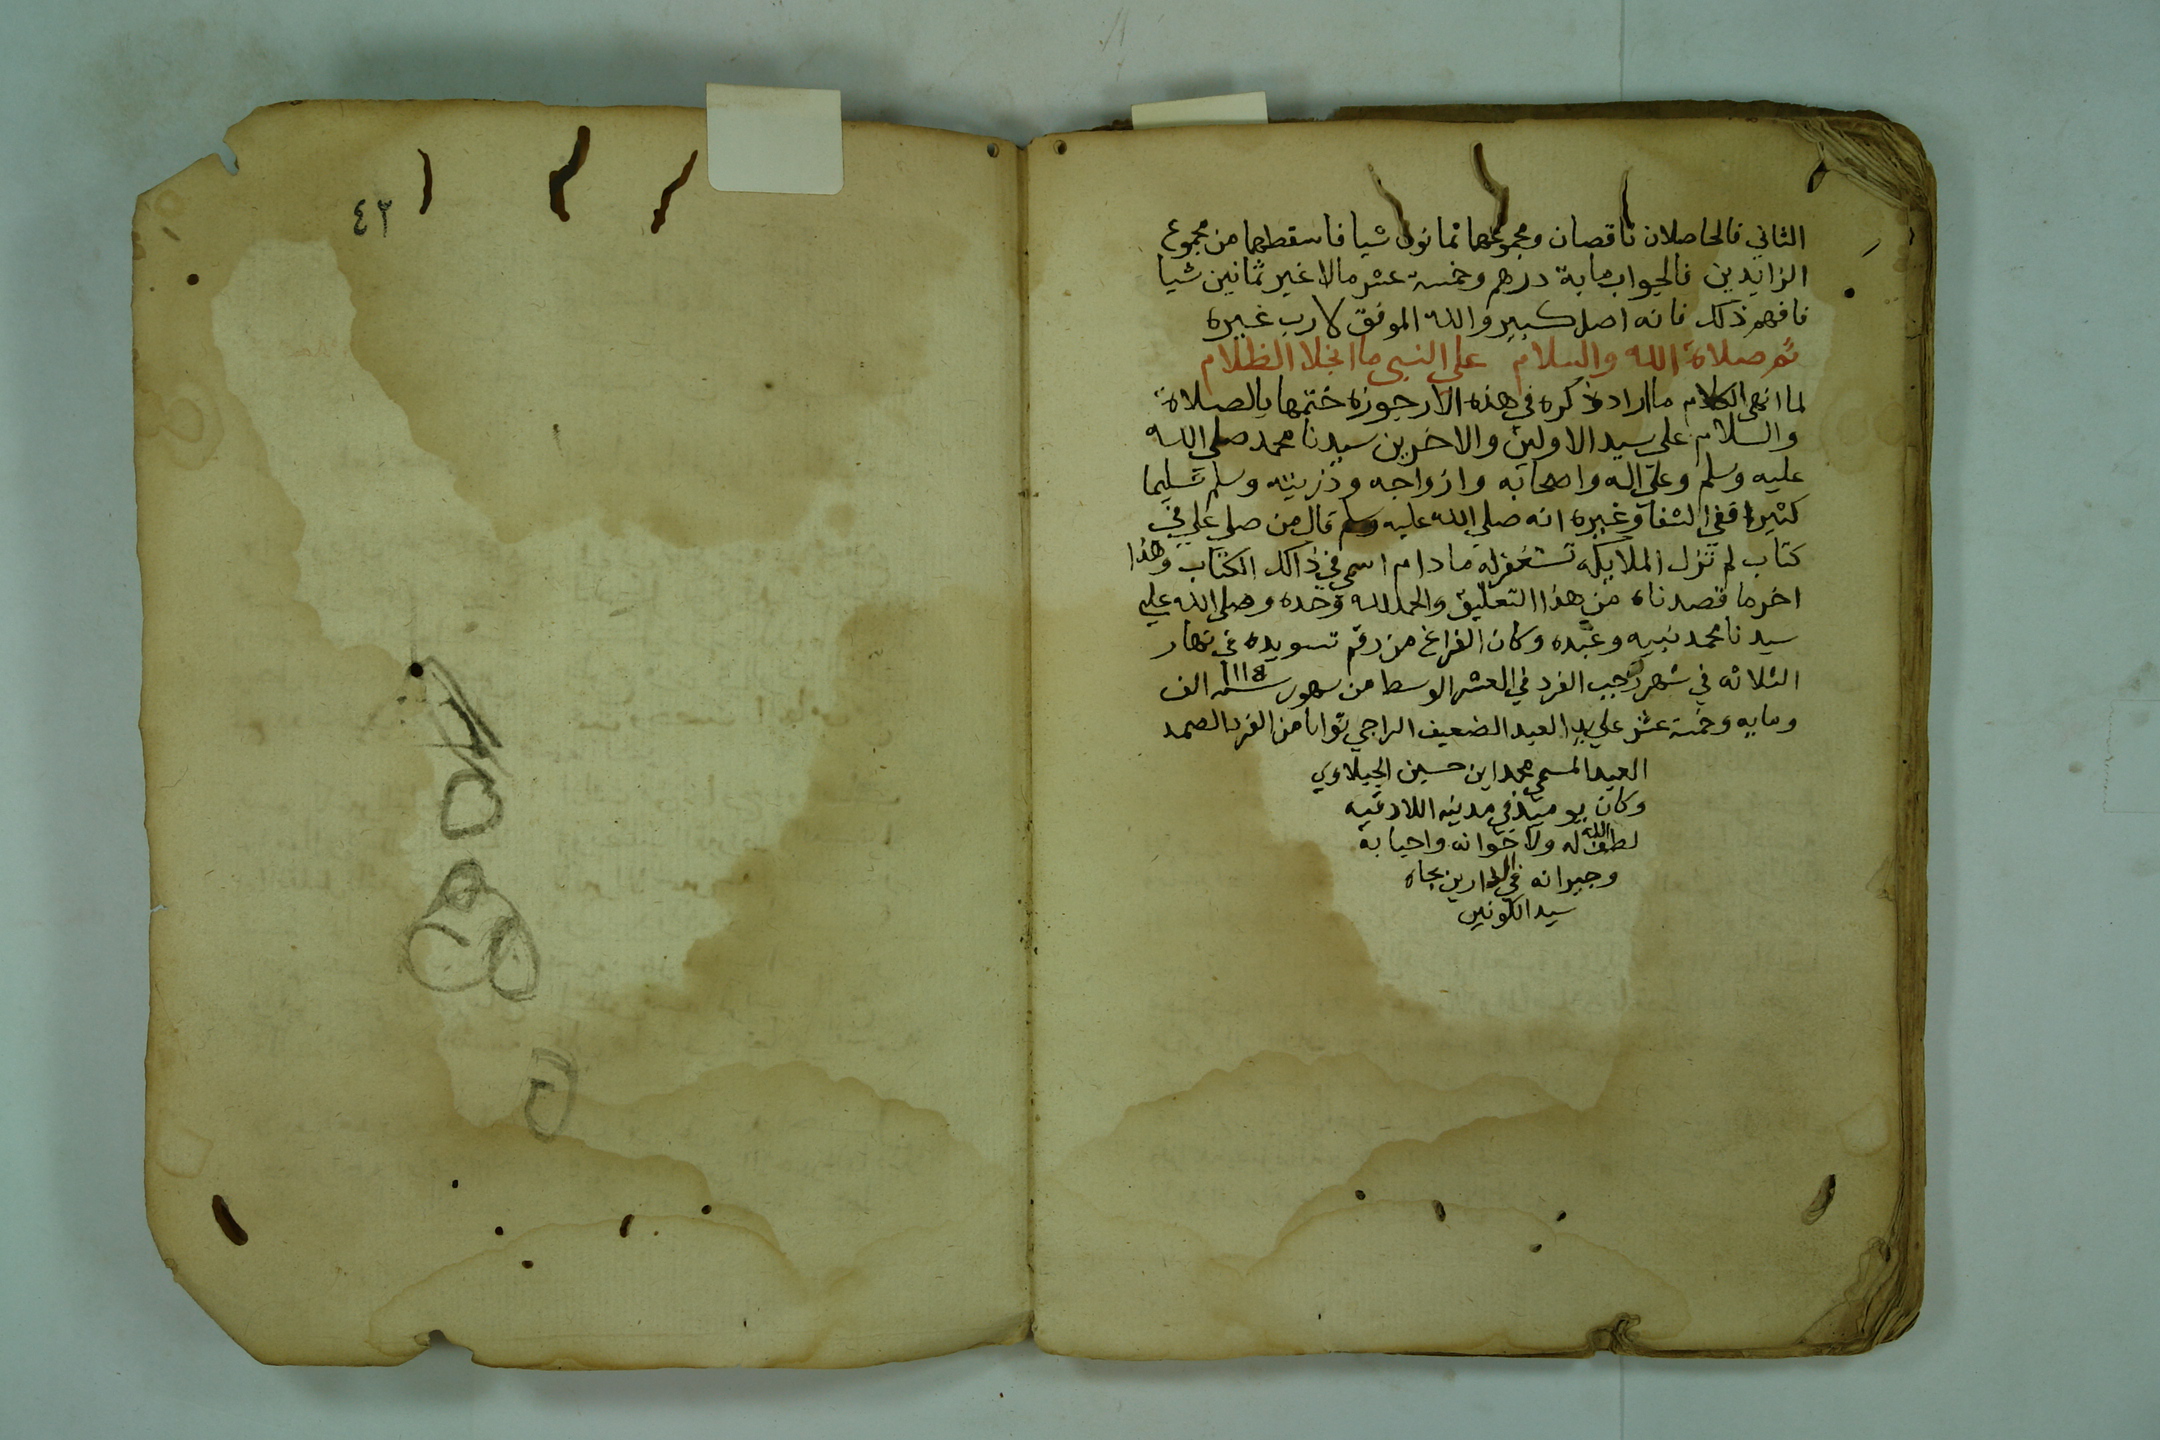 الثاني فالحاصلان ناقصان ومجموعهما ثمانون شيا فاسقطهما من مجموع
الزايدين فالجواب ماية درهم وخمسة عشر مالا غير ثمانين شيا
فافهم ذلك فانه اصل كبير والله الموفق لا رب غيره
ثم صلاة الله والسلام على النبي ما انجلا الظلام
لما انهى الكلام ما اراد ذكره في هذه الارجوزه ختمها بالصلاة
والسلام على سيد الاولين والاخرين سيدنا محمد صلى الله
عليه وسلم وعلى اله واصحابه وازواجه وذريته وسلم تسليما
كثيرا ففي الشفا وغيره انه صلى الله عليه وسلم قال من صلي علي في
كتاب لم تزل الملايكه تستغفر له ما دام اسمي في ذالك الكتاب وهذا
اخر ما قصدناه من هذا التعليق والحمد لله وحده وصلى الله على
سيدنا محمد نبيه وعبده وكان الفراغ من رقم تسويده في نهار
الثلاثه في شهر رجب الفرد في العشر الوسط من شهور سنة ١١١٥ الف
ومايه وخمسة عشر على يد العبد الضعيف الراجي ثوابا من الفرد الصمد
العبد المسمى محمد ابن حسين الجيلاوي
وكان يوميذ في مدينه اللادقيه
لطف الله له ولاخوانه واحبابه
وجيرانه في الدارين بجاه
سيد الكونين
٤٢